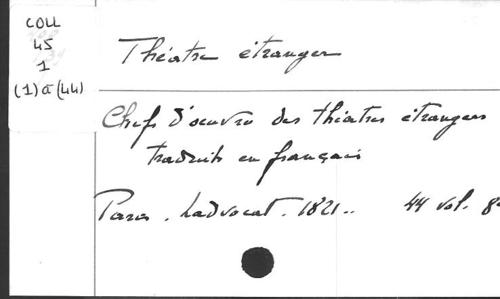 COLL
45
1
(1) à (44)
Théâtre étranger
Chefs d'oeuvre des théâtres étrangers
traduits en français
Paris. Ladvocat. 1821.. 44 vol. 8°